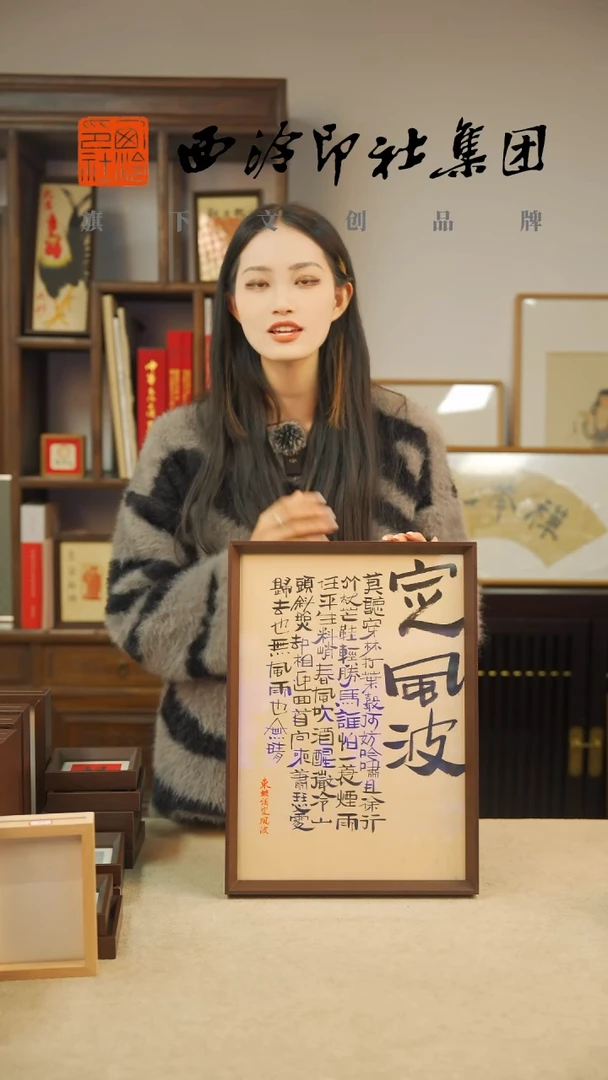 西泠印社
西泠印社集团
旗下文创品牌
定風波
莫聽穿林打葉聲何妨吟嘯且徐行
竹杖芒鞋輕勝馬誰怕一蓑煙雨
任平生料峭春風吹酒醒微冷山
頭斜照却相迎回首向來蕭瑟處
歸去也無風雨也無晴
東坡詞定風波
禪茶一